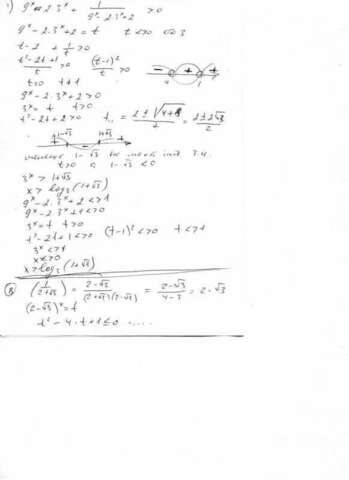 9ˣ - 2·3ˣ + 1/(9ˣ - 2·3ˣ + 2) > 0
9ˣ - 2·3ˣ + 2 = t t <> 0
t - 2 + 1/t > 0
(t² - 2t + 1)/t > 0 (t-1)²/t > 0
t > 0 t ≠ 1
9ˣ - 2·3ˣ + 2 > 0
3ˣ = t t > 0
t² - 2t + 2 > 0 = (2 ± 2√3)/2
1-√3 1+√3
1-√3
t > 0 1-√3 < 0
3ˣ > 1+√3
x > log₃(1+√3)
9ˣ - 2·3ˣ + 2 <> 1
9ˣ - 2·3ˣ + 1 <> 0
3ˣ = t t > 0
t² - 2t + 1 <> 0 (t-1)² <> 0 t <> 1
3ˣ <> 1
x <> 0
x > log₃(1+√3)
(1/(2+√3)) = (2-√3)/((2+√3)(2-√3)) = (2-√3)/(4-3) = 2-√3
(2-√3)ˣ = t
t² - 4·t + 1 ≤ 0 ....